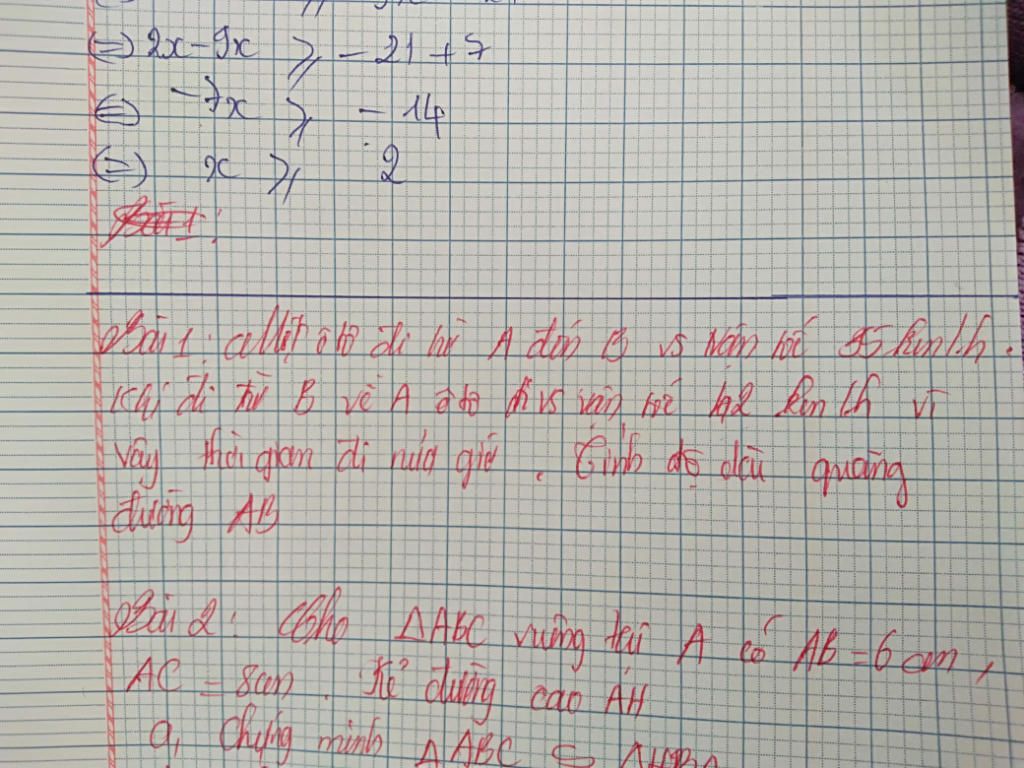 (=) 2x - 9x ⩾ - 21 + 7
(=) - 7x ⩾ - 14
(=) x ⩾ 2
Bài 1:
Bài 1: Một ô tô đi từ A đến B vs vận tốc 35 km/h.
Khi đi từ B về A ô tô đi vs vận tốc km/h vì
vậy thời gian đi nửa giờ. Tính độ dài quãng
đường AB
Bài 2: Cho ΔABC vuông tại A có AB = 6 cm,
AC = 8cm. Kẻ đường cao AH
a, Chứng minh ΔABC ∽ ΔHBA